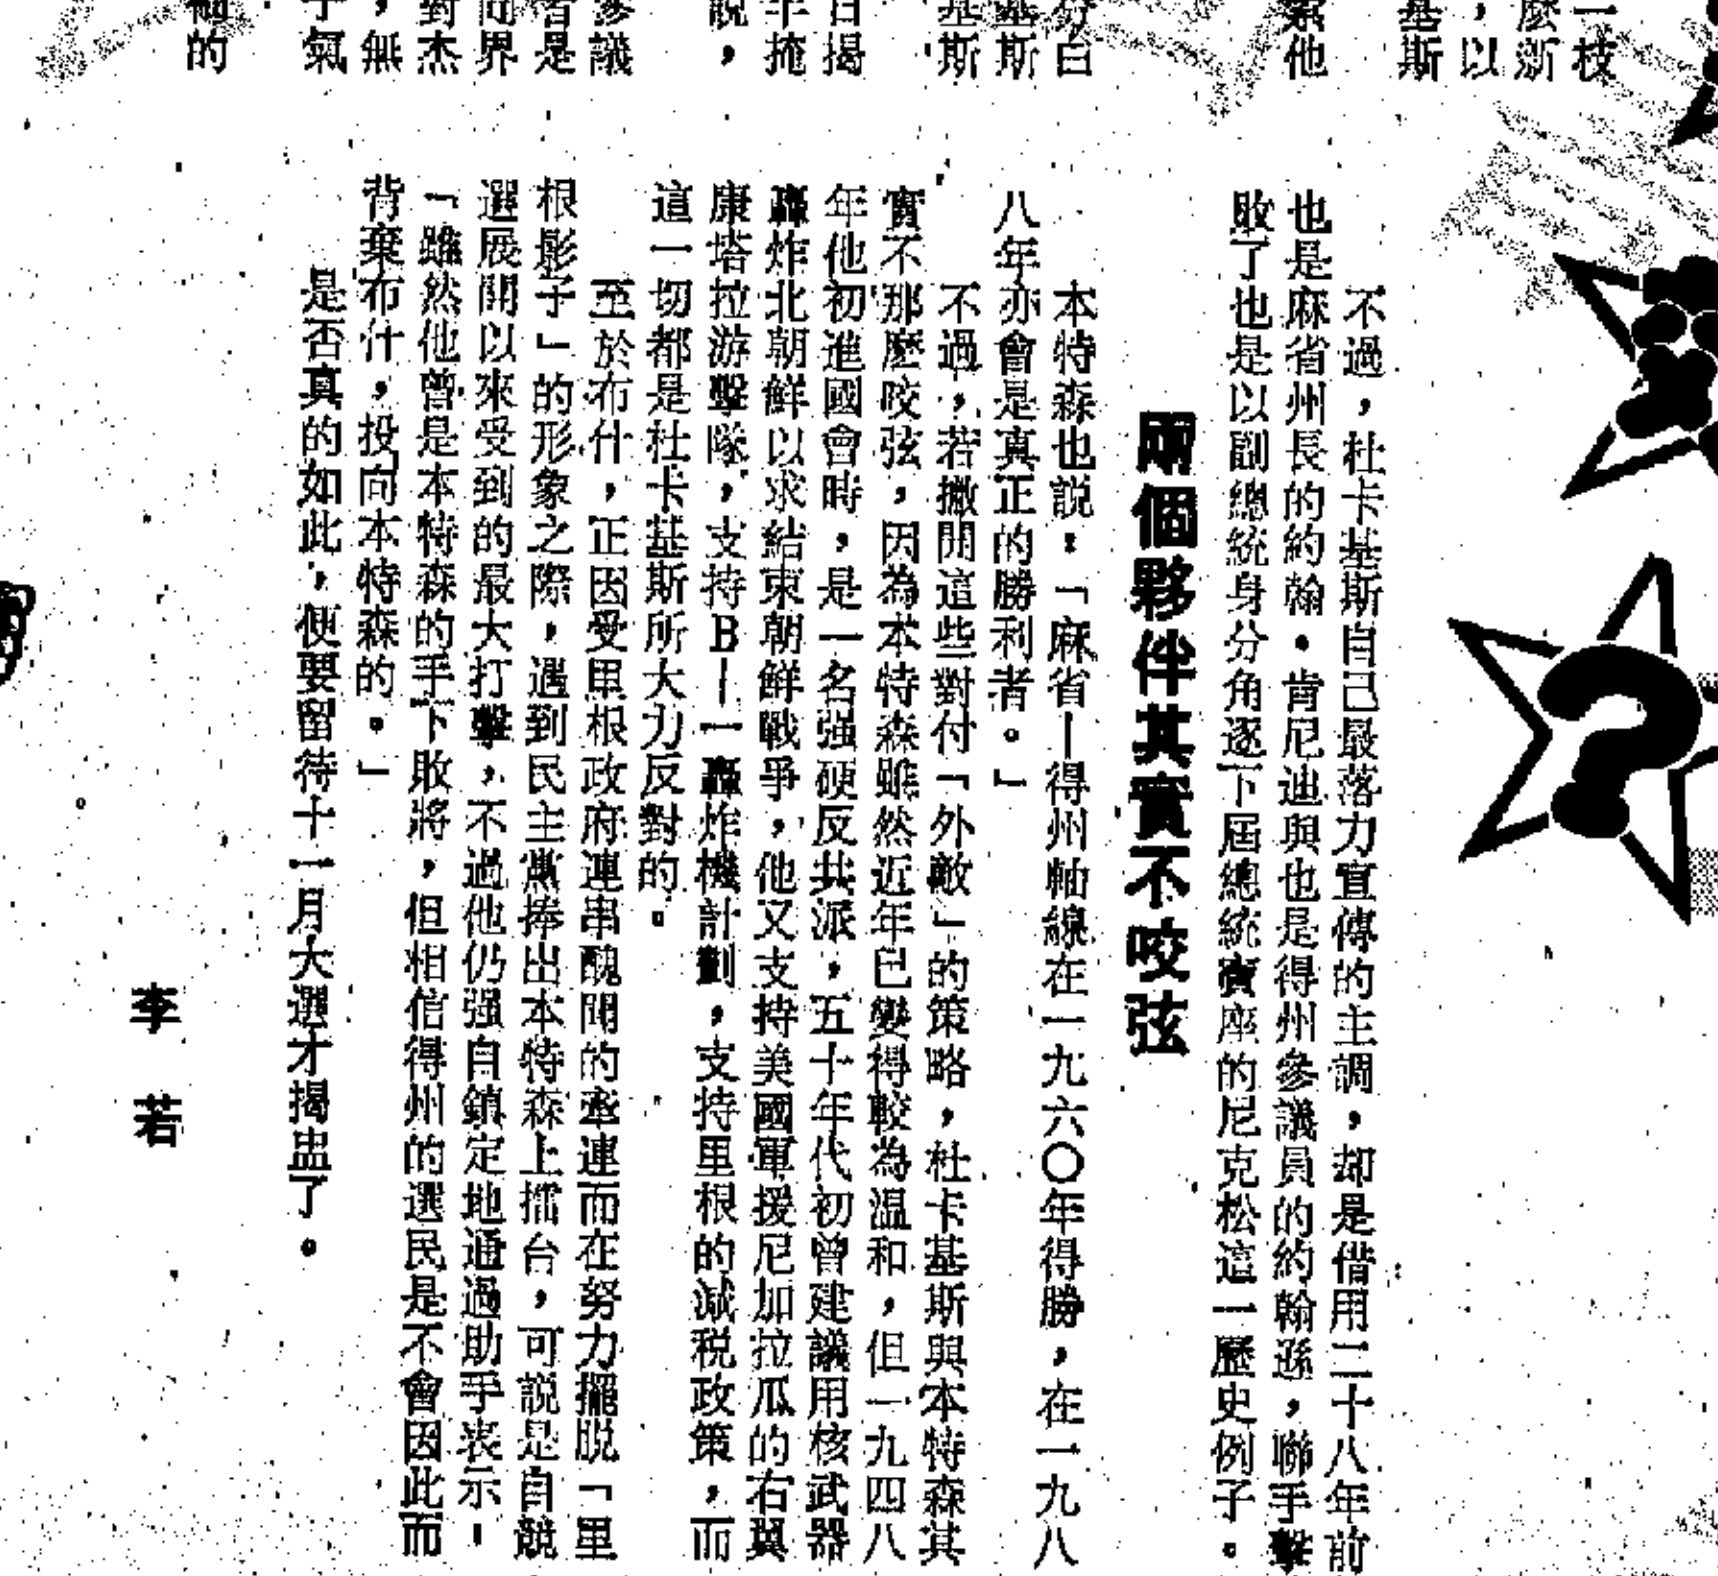 一枝
麼新
，以
基斯
他
分白
基斯
基斯
日揭
年掩
説，
參議
者是
間界
對杰
，無
子氣
袖的
不過，杜卡基斯自己最落力宣傳的主調，却是借用二十八年前
也是麻省州長的約翰・肯尼迪與也是得州參議員的約翰遜，聯手擊
敗了也是以副總統身分角逐下屆總統寶座的尼克松這一歷史例子。
兩個夥伴其實不咬弦
本特森也説：「麻省—得州軸線在一九六〇年得勝，在一九八
八年亦會是真正的勝利者。」
不過，若撇開這些對付「外敵」的策略，杜卡基斯與本特森其
實不那麼咬弦，因為本特森雖然近年已變得較為温和，但一九四八
年他初進國會時，是一名强硬反共派，五十年代初曾建議用核武器
轟炸北朝鮮以求結束朝鮮戰爭，他又支持美國軍援尼加拉瓜的右翼
康塔拉游擊隊，支持B—一轟炸機計劃，支持里根的減税政策，而
這一切都是杜卡基斯所大力反對的。
至於布什，正因受里根政府連串醜聞的牽連而在努力擺脱「里
根影子」的形象之際，遇到民主黨捧出本特森上擂台，可説是自競
選展開以來受到的最大打擊，不過他仍强自鎮定地通過助手表示，
「雖然他曾是本特森的手下敗將，但相信得州的選民是不會因此而
背棄布什，投向本特森的。」
是否真的如此，便要留待十一月大選才揭盅了。
李若